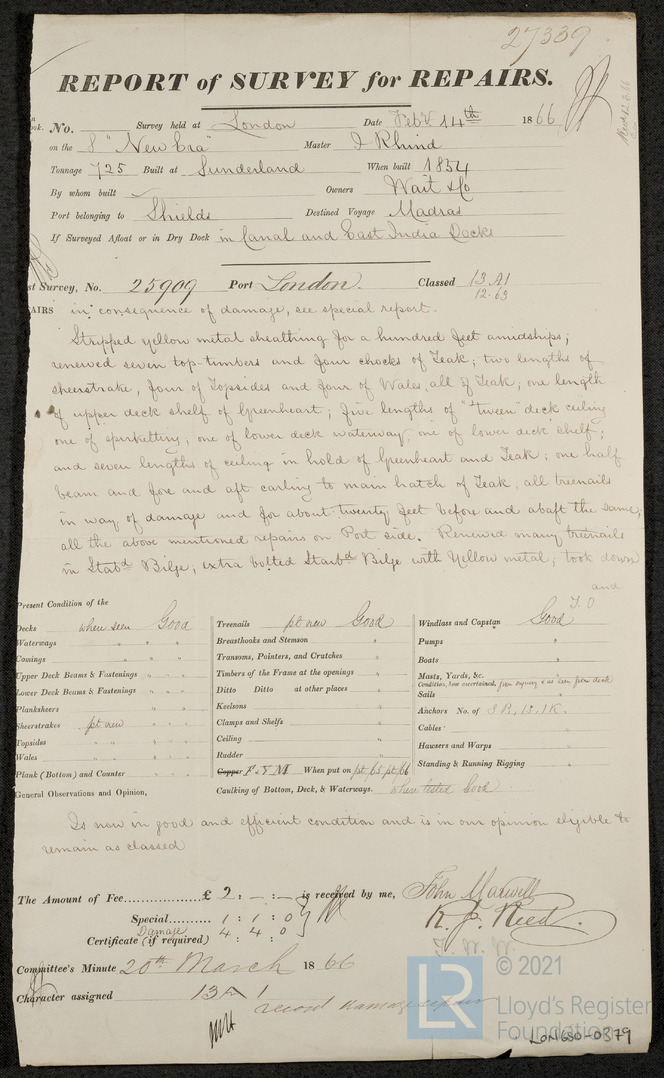 27339.
REPORT of SURVEY for REPAIRS.
No. Survey held at London Date Feby 14th 1866
on the S "New Era" Master J Rhind
Tonnage 725 Built at Sunderland When built 1854
By whom built Owners Wait & Co
Port belonging to Shields Destined Voyage Madras
If Surveyed Afloat or in Dry Dock in Canal and East India Docks
st Survey, No. 25909 Port London. Classed 13 A1
12.63
AIRS in consequence of damage, see special report.
Stripped yellow metal sheathing for a hundred feet amidships;
renewed seven top-timbers and four chocks of Teak; two lengths of
sheerstrake, four of Topsides and four of Wales, all of Teak; one length
of upper deck shelf of Greenheart; five lengths of "'tween" deck ceiling
one of spirketting, one of lower deck waterway, one of lower deck shelf;
and seven lengths of ceiling in hold of Greenheart and Teak; one half
beam and fore and aft carling to main hatch of Teak, all treenails
in way of damage and for about twenty feet before and abaft the same;
all the above mentioned repairs on Port side. Renewed many treenails
in Starbd Bilge; extra bolted Starbd Bilge with Yellow metal; took down
and
T.O
Present Condition of the
Decks when seen Good
Waterways " " "
Comings " " "
Upper Deck Beams & Fastenings " " "
Lower Deck Beams & Fastenings " " "
Planksheers " " "
Sheerstrakes pt new " "
Topsides " " "
Wales " " "
Plank (Bottom) and Counter " " "
General Observations and Opinion,
Treenails pt new Good
Breasthooks and Stemson "
Transoms, Pointers, and Crutches "
Timbers of the Frame at the openings "
Ditto Ditto at other places "
Keelsons "
Clamps and Shelfs "
Ceiling "
Rudder "
Copper F. & Y M When put on pt/65 pt/66
Caulking of Bottom, Deck, & Waterways. where tested Good
Windlass and Capstan Good
Pumps "
Boats "
Masts, Yards, &c. "
Condition, how ascertained, from enquiry & as seen from deck
Sails "
Anchors No. of 3 B, 1S, 1K.
Cables "
Hawsers and Warps "
Standing & Running Rigging "
Is now in good and efficient condition and is in our opinion eligible to
remain as classed
The Amount of Fee £ 2 : - : - is received by me, John Maxwell
Special 1 : 1 : 0 K. J. Reed.
Damage 4 : 4 : 0
Certificate (if required) : :
Committee's Minute 20th March 1866
Character assigned 13 A 1
record damage repairs
© 2021
LR Lloyd's Register
Foundation
LON650-0379